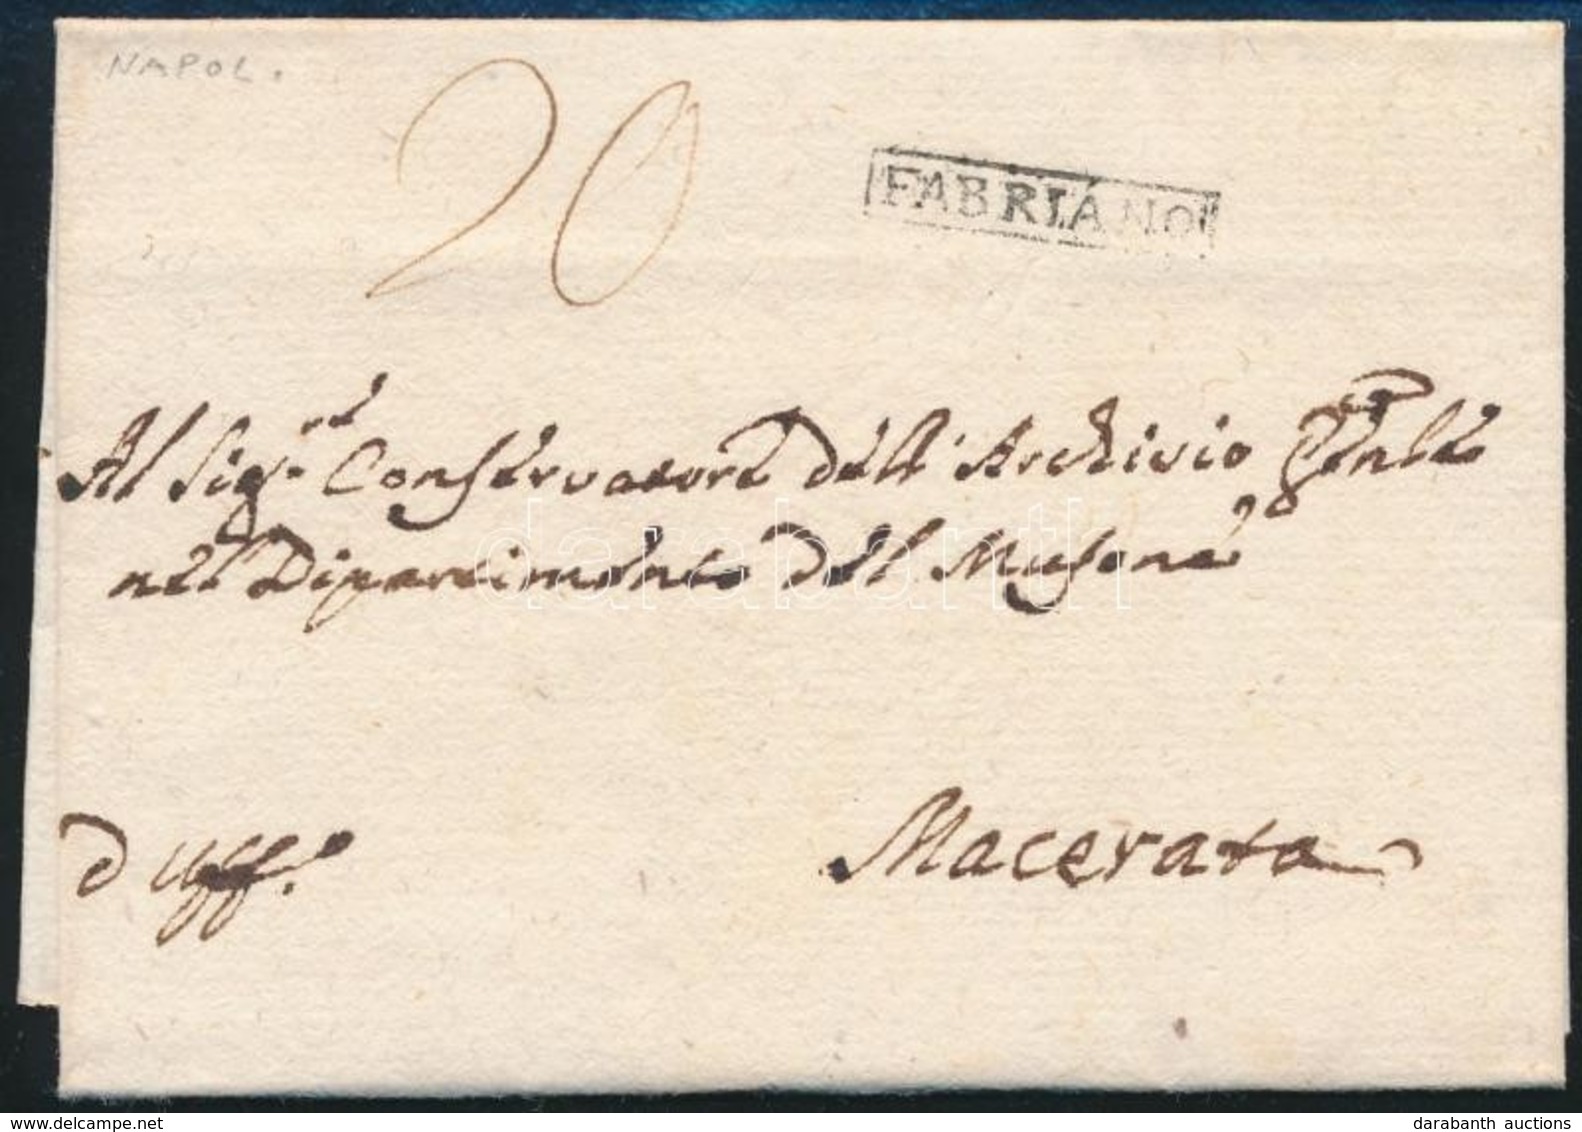 NAPOL.
20
FABRIANO
Al Sig.re Conservatore dell' Archivio Genle
nel Dipartimento del Musone
d Uff.o
Macerata
darabanth
delcampe.net
darabanth auctions